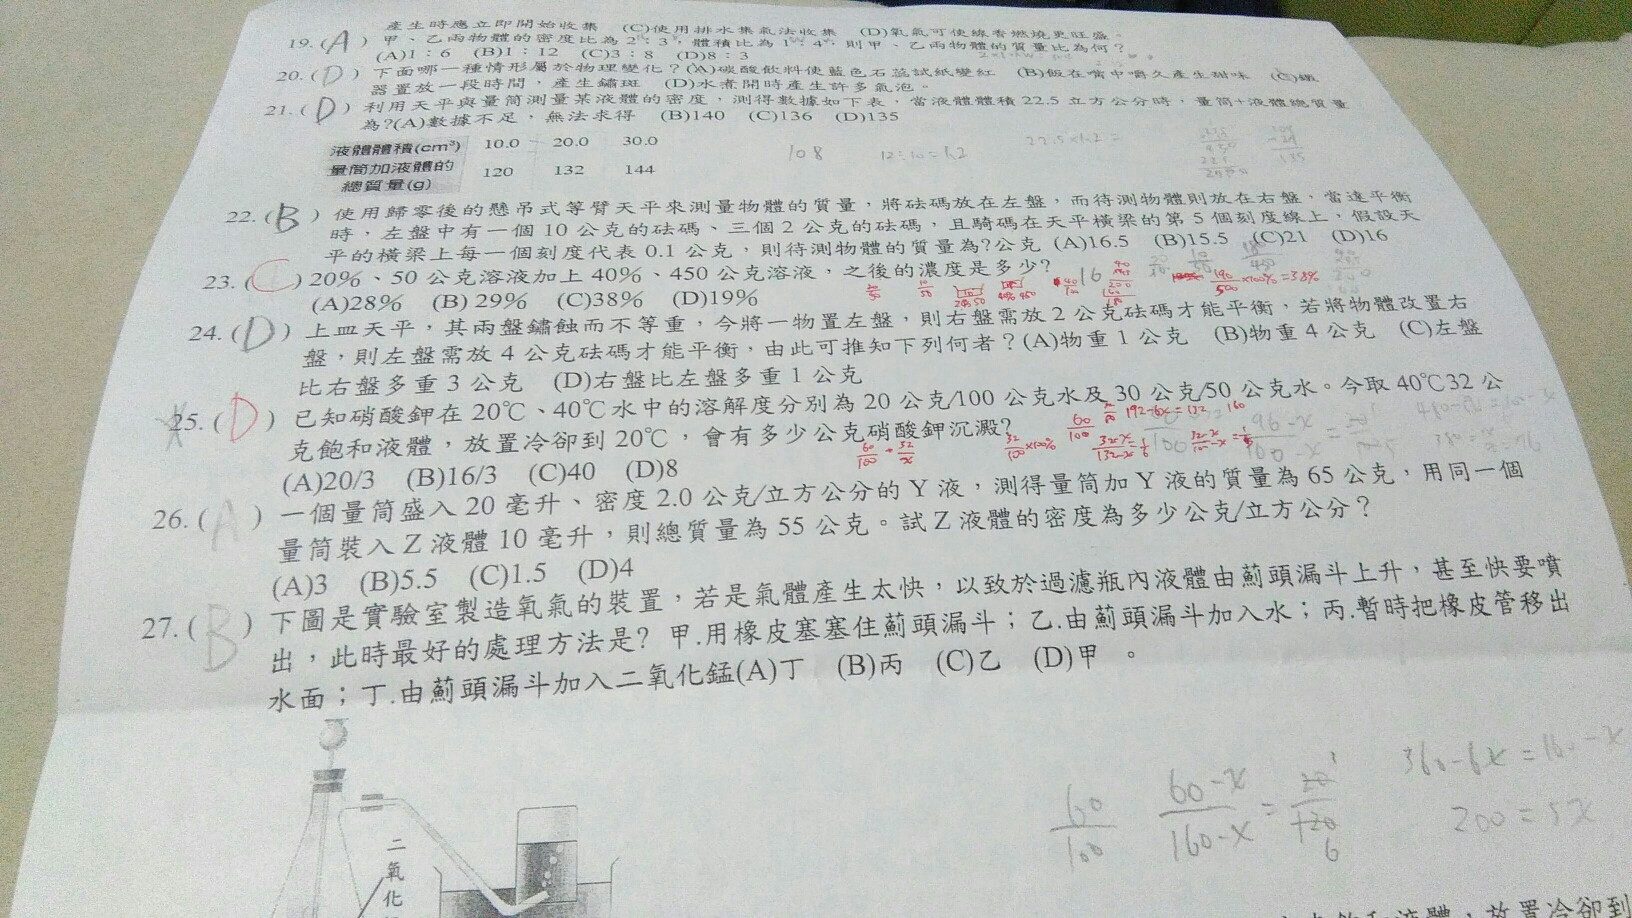 產生時應立即開始收集 (C)使用排水集氣法收集 (D)氧氣可使線香燃燒更旺盛。
19.(A) 甲、乙兩物體的密度比為2:3,體積比為1:4,則甲、乙兩物體的質量比為何?
(A)1:6 (B)1:12 (C)3:8 (D)8:3
20.(D) 下面哪一種情形屬於物理變化?(A)碳酸飲料使藍色石蕊試紙變紅 (B)飯在嘴中嚼久產生甜味 (C)鐵
器置放一段時間,產生鏽斑 (D)水煮開時產生許多氣泡。
21.(D) 利用天平與量筒測量某液體的密度,測得數據如下表,當液體體積22.5立方公分時,量筒+液體總質量
為?(A)數據不足,無法求得 (B)140 (C)136 (D)135
液體體積(cm³) 10.0 20.0 30.0
量筒加液體的
總質量(g) 120 132 144
108 12÷10=1.2 22.5×1.2=
22.(B) 使用歸零後的懸吊式等臂天平來測量物體的質量,將砝碼放在左盤,而待測物體則放在右盤,當達平衡
時,左盤中有一個10公克的砝碼、三個2公克的砝碼,且騎碼在天平橫梁的第5個刻度線上,假設天
平的橫梁上每一個刻度代表0.1公克,則待測物體的質量為?公克 (A)16.5 (B)15.5 (C)21 (D)16
23.(C) 20%、50公克溶液加上40%、450公克溶液,之後的濃度是多少?
16 190/500×100%=38%
(A)28% (B)29% (C)38% (D)19%
24.(D) 上皿天平,其兩盤鏽蝕而不等重,今將一物置左盤,則右盤需放2公克砝碼才能平衡,若將物體改置右
盤,則左盤需放4公克砝碼才能平衡,由此可推知下列何者?(A)物重1公克 (B)物重4公克 (C)左盤
比右盤多重3公克 (D)右盤比左盤多重1公克
25.(D) 已知硝酸鉀在20℃、40℃水中的溶解度分別為20公克/100公克水及30公克/50公克水。今取40℃32公
克飽和液體,放置冷卻到20℃,會有多少公克硝酸鉀沉澱?
60/100 192-6x=132 160
(A)20/3 (B)16/3 (C)40 (D)8
26.(A) 一個量筒盛入20毫升、密度2.0公克/立方公分的Y液,測得量筒加Y液的質量為65公克,用同一個
量筒裝入Z液體10毫升,則總質量為55公克。試Z液體的密度為多少公克/立方公分?
(A)3 (B)5.5 (C)1.5 (D)4
27.(B) 下圖是實驗室製造氧氣的裝置,若是氣體產生太快,以致於過濾瓶內液體由薊頭漏斗上升,甚至快要噴
出,此時最好的處理方法是? 甲.用橡皮塞塞住薊頭漏斗;乙.由薊頭漏斗加入水;丙.暫時把橡皮管移出
水面;丁.由薊頭漏斗加入二氧化錳(A)丁 (B)丙 (C)乙 (D)甲 。
60/100 60-x/160-x=20/120 1 6
360-6x=160-x
200=5x
二氧化
放置冷卻到